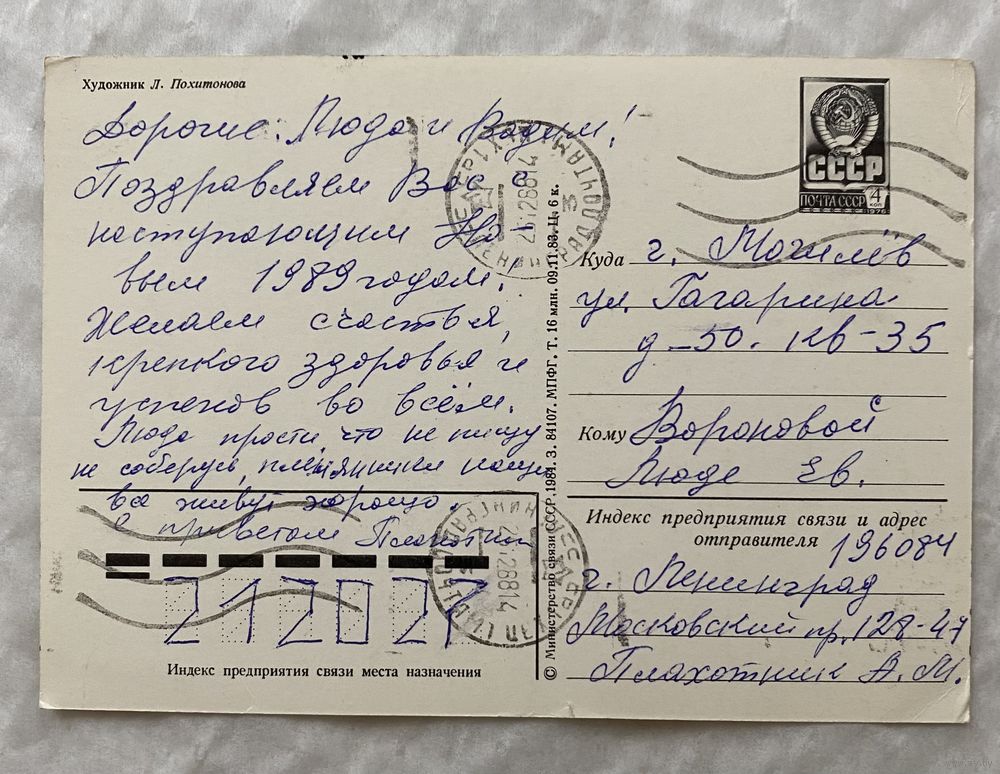 Художник Л. Похитонова
Дорогие Люда и Вадим!
Поздравляем Вас с
наступающим Но-
вым 1989 годом.
Желаем счастья,
крепкого здоровья и
успехов во всём.
Люда прости, что не пишу
не соберусь, племянники наши
все живут хорошо.
С приветом Плахотник
212027
Индекс предприятия связи места назначения
© Министерство связи СССР, 1984. З. 84107. МПФГ. Т. 16 млн. 09.11.83. Ц. 6 к.
СССР
4 коп
ПОЧТА СССР
1976
Куда г. Могилёв
ул. Гагарина
д-50. кв-35
Кому Вороновой
Люде Ев.
Индекс предприятия связи и адрес
отправителя 196084
г. Ленинград
Московский пр. 128-47
Плахотник А. М.